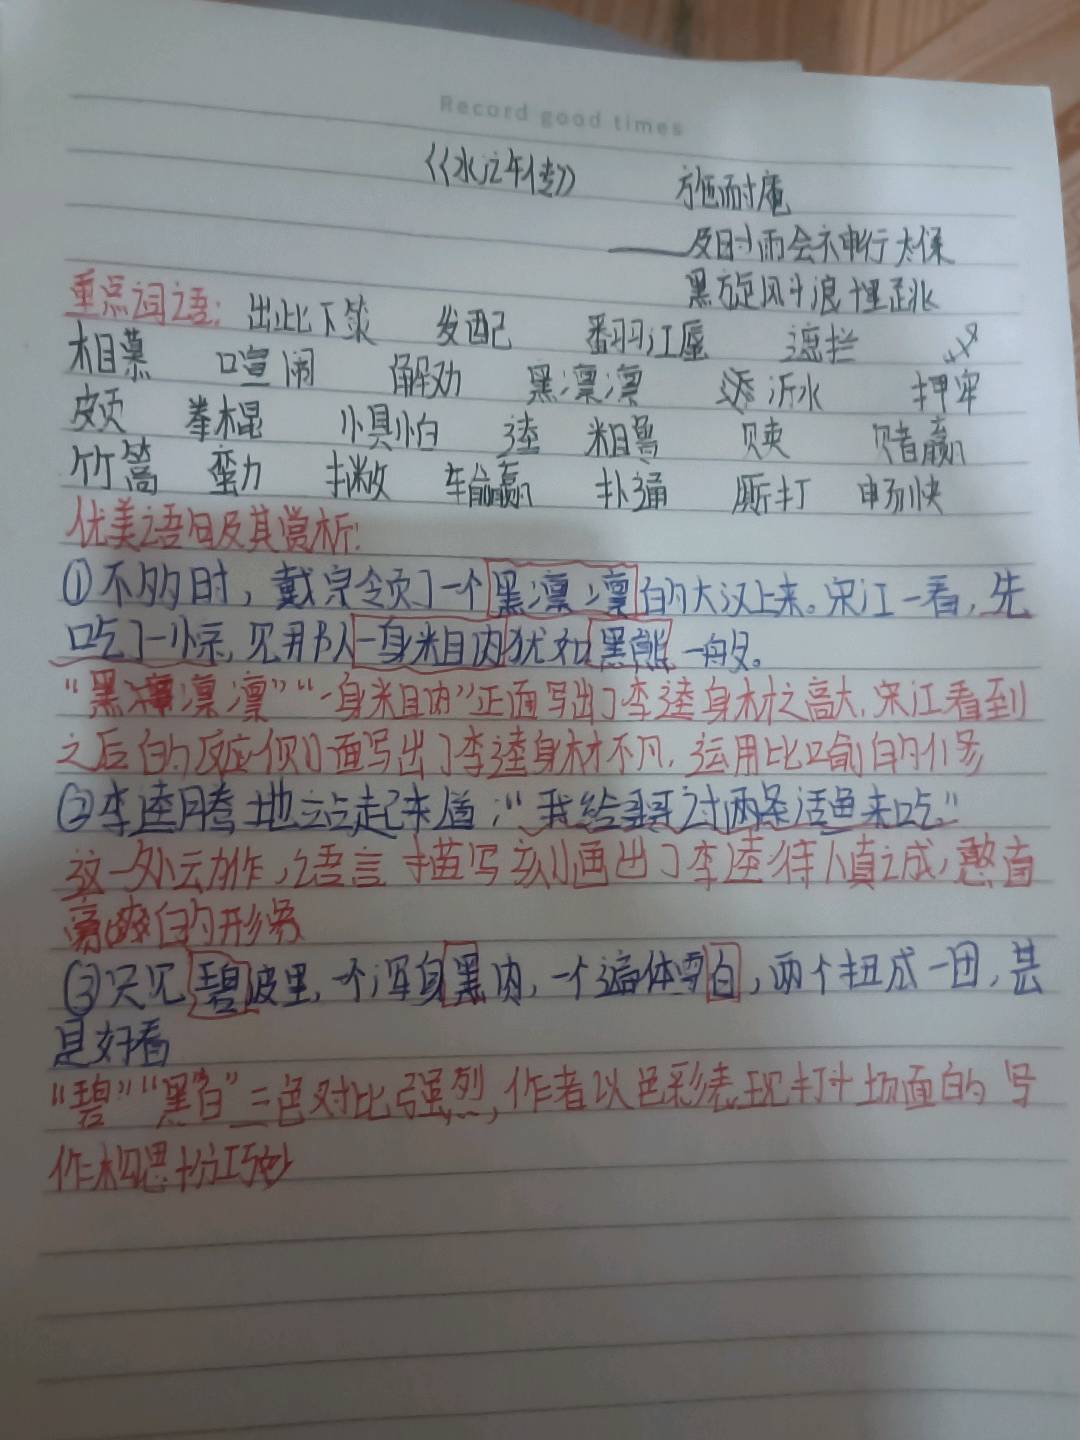 Record good times
《水浒传》 施耐庵
——及时雨会神行太保
黑旋风斗浪里跳
重点词语: 出此下策 发配 翻江 遮拦
相慕 喧闹 解劝 黑凛凛 浔水 押牢
颇 拳棍 惧怕 逵 粗鲁 赎 赌赢
竹篙 蛮力 撒 输赢 扑通 厮打 畅快
优美语句及其赏析:
①不多时，戴宗领了一个黑凛凛的大汉上来。宋江一看，先
吃了一惊，见那人一身粗肉犹如黑熊一般。
“黑凛凛”“一身粗肉”正面写出了李逵身材之高大，宋江看到
之后的反应侧面写出了李逵身材不凡，运用比喻的修
②李逵腾地站起来道：“我给哥哥讨两条活鱼来吃”
这一处动作，语言描写刻画出了李逵待人真诚，憨直
豪爽的形象
③只见碧波里，一个浑身黑肉，一个遍体雪白，两个扭成一团，甚
是好看
“碧”“黑白”三色对比强烈，作者以色彩表现打斗场面的写
作构思十分巧妙